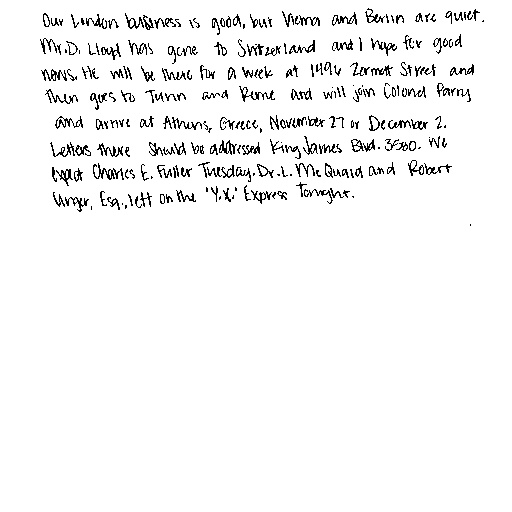 Our London business is good, but Vienna and Berlin are quiet.
Mr. D. Lloyd has gone to Switzerland and I hope for good
news. He will be there for a week at 1496 Zermott Street and
then goes to Turin and Rome and will join Colonel Parry
and arrive at Athens, Greece, November 27 or December 2.
Letters there should be addressed King James Blvd. 3580. We
expect Charles E. Fuller Tuesday. Dr. L. McQuaid and Robert
Unger, Esq., left on the "Y.X." Express Tonight.